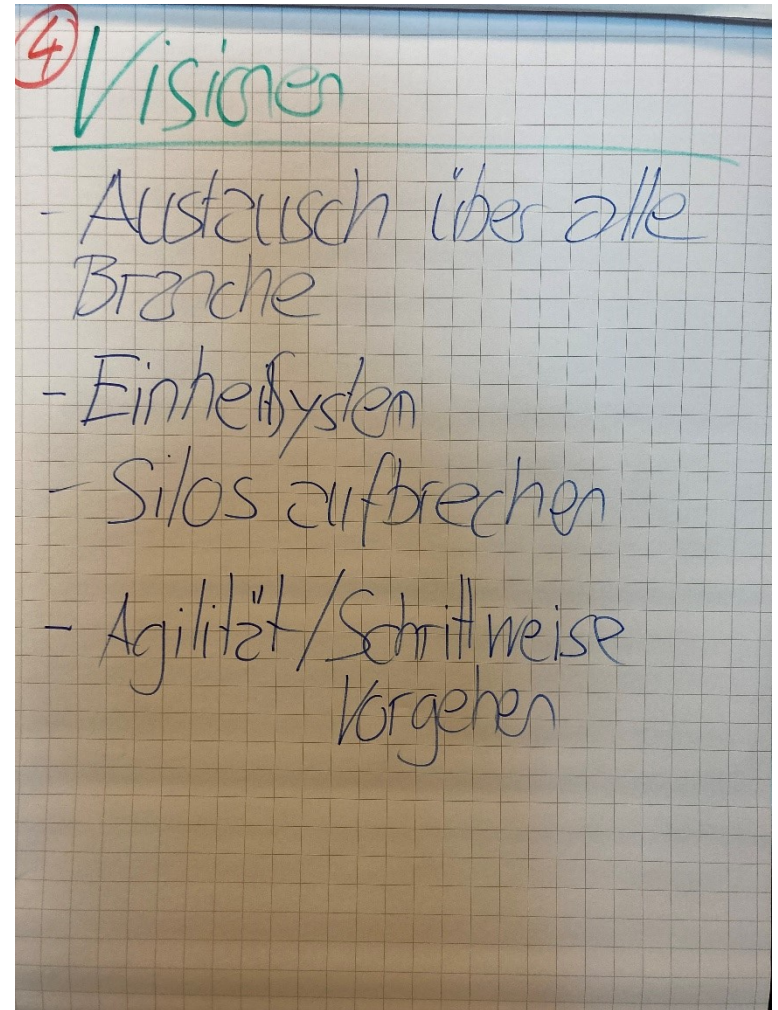 ④ Visionen
- Austausch über alle
Branche
- Einheitsystem
- Silos aufbrechen
- Agilität/Schrittweise
Vorgehen